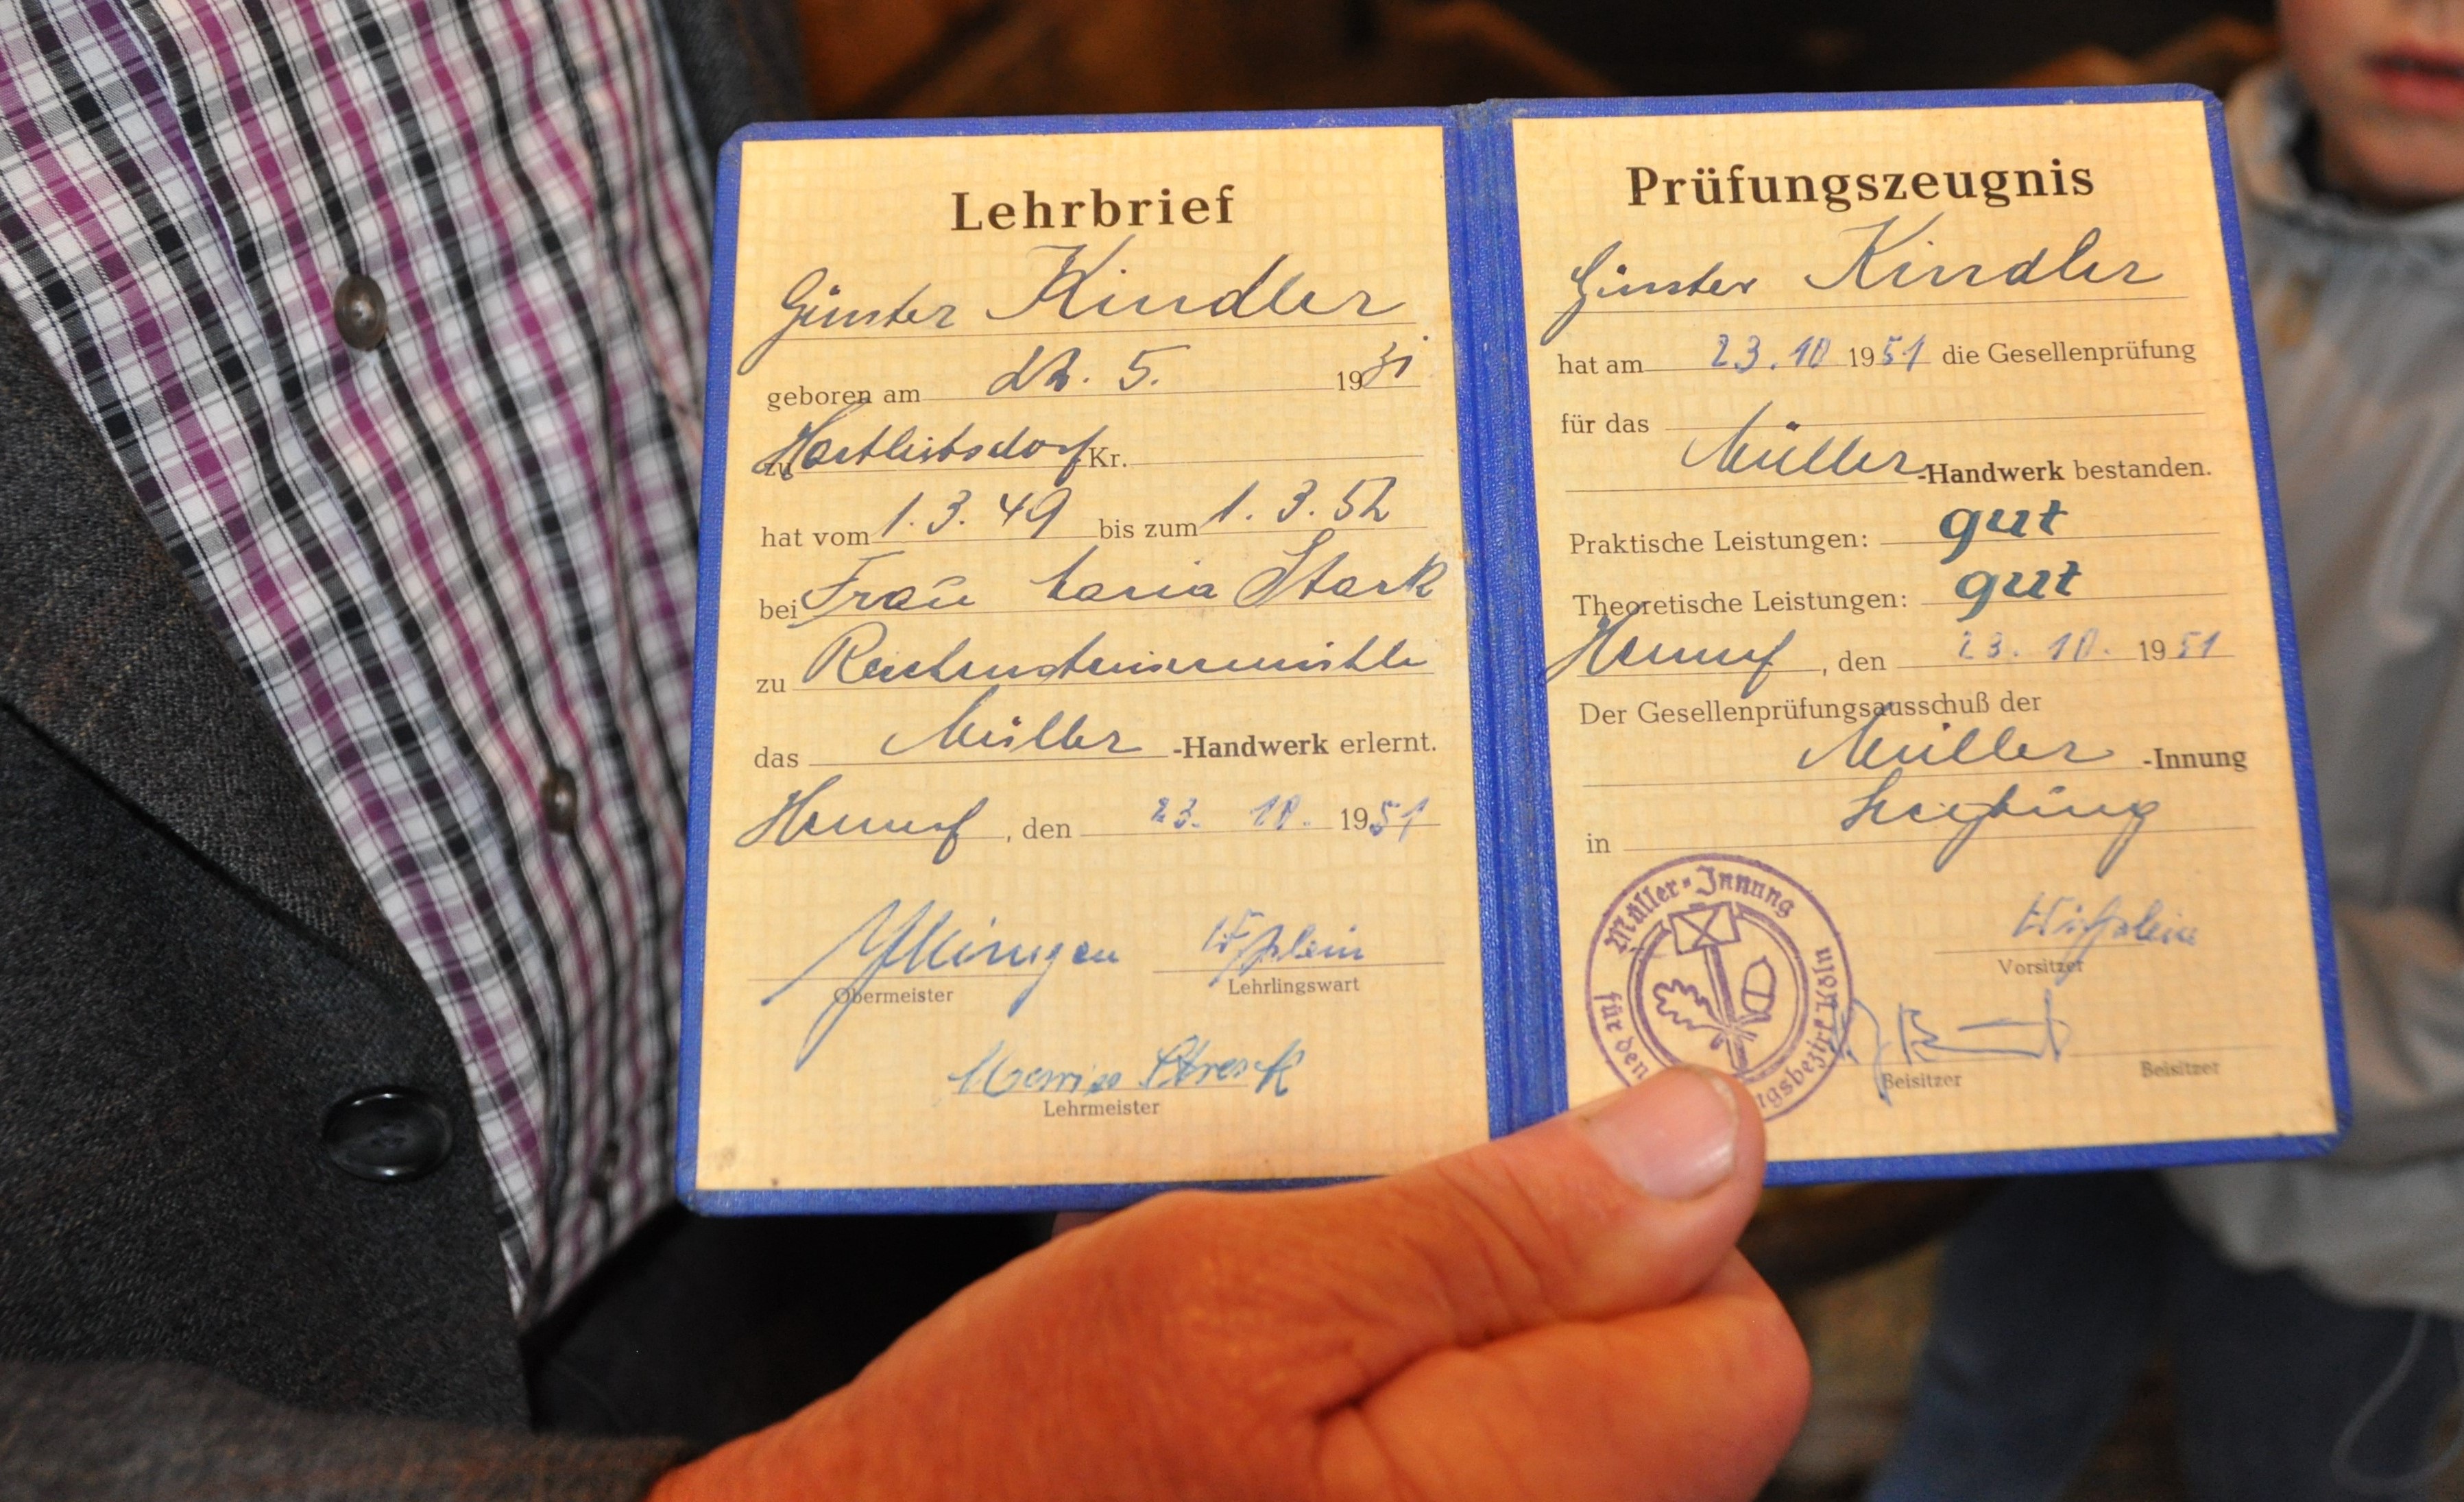 Lehrbrief
Günter Kindler
geboren am 22. 5. 1931
zu Hartliebsdorf Kr.
hat vom 1. 3. 49 bis zum 1. 3. 52
bei Frau Maria Stark
zu Reichensteinermühle
das Müller -Handwerk erlernt.
Hennef, den 23. 10. 1951
Obermeister
Lehrlingswart
Maria Stark
Lehrmeister
Prüfungszeugnis
Günter Kindler
hat am 23. 10 1951 die Gesellenprüfung
für das
Müller -Handwerk bestanden.
Praktische Leistungen: gut
Theoretische Leistungen: gut
Hennef, den 23. 10. 1951
Der Gesellenprüfungsausschuß der
Müller -Innung
in Siegburg
Müller-Innung
für den
ngsbezirk Köln
Vorsitzer
Beisitzer
Beisitzer